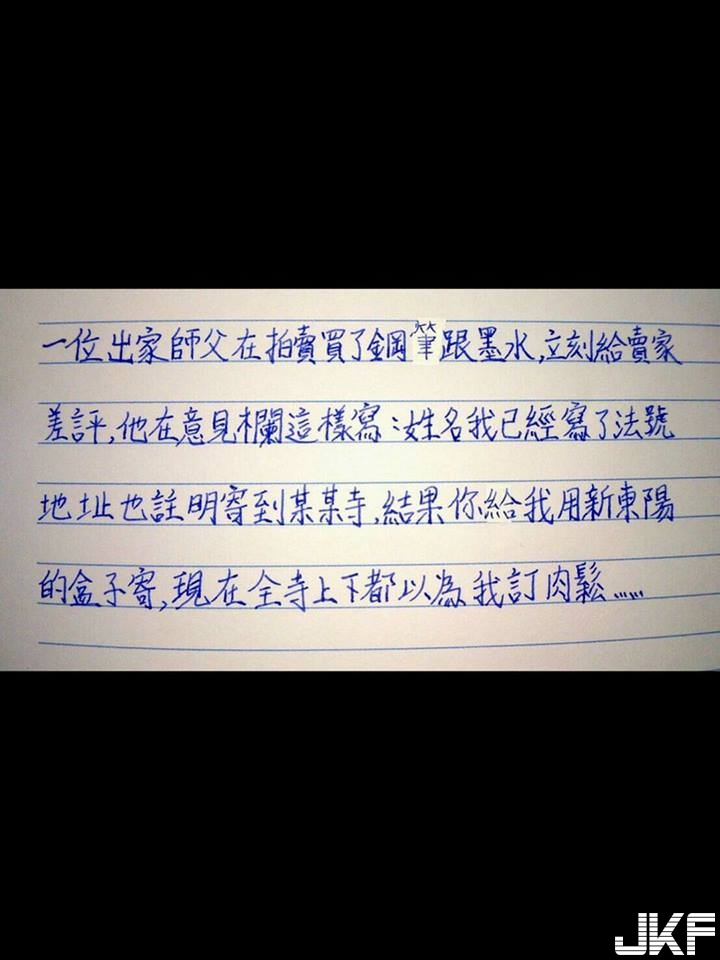 一位出家師父在拍賣買了鋼筆跟墨水,立刻給賣家
差評,他在意見欄這樣寫:姓名我已經寫了法號
地址也註明寄到某某寺,結果你給我用新東陽
的盒子寄,現在全寺上下都以為我訂肉鬆......
JKF